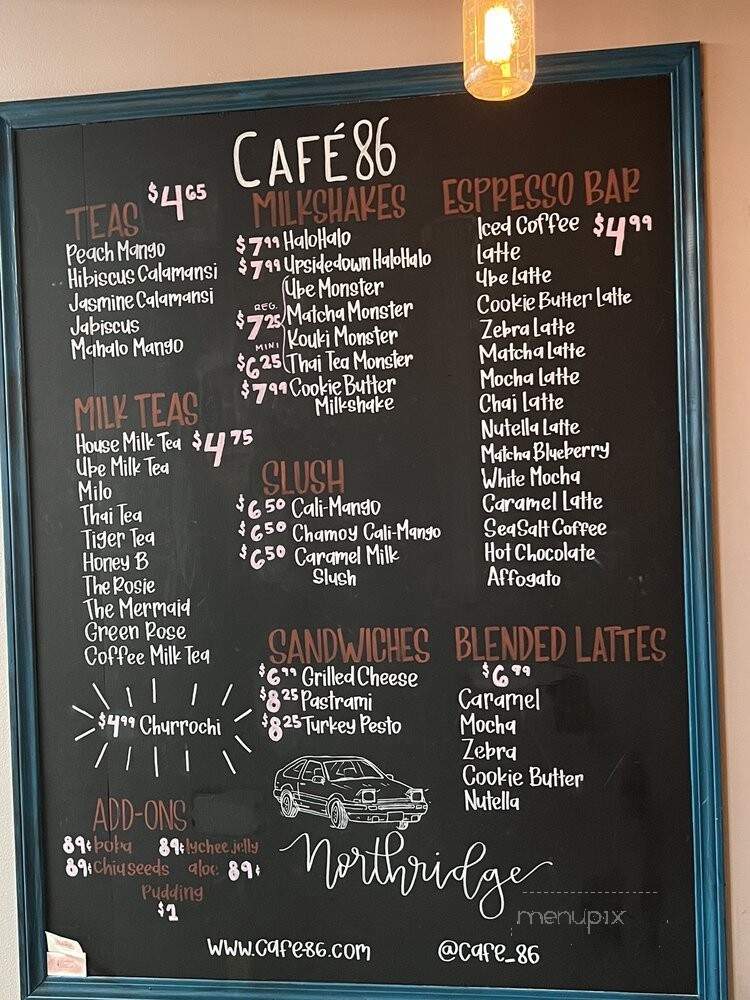 CAFÉ 86
TEAS $4.65
Peach Mango
Hibiscus Calamansi
Jasmine Calamansi
Jabiscus
Mahalo Mango
MILK TEAS
House Milk Tea $4.75
Ube Milk Tea
Milo
Thai Tea
Tiger Tea
Honey B
The Rosie
The Mermaid
Green Rose
Coffee Milk Tea
$4.99 Churrochi
ADD-ONS
89¢ boba 89¢ lychee jelly
89¢ Chia seeds aloe 89¢
Pudding
$1
MILKSHAKES
$7.99 HaloHalo
$7.99 Upsidedown HaloHalo
Ube Monster
REG. $7.25 Matcha Monster
Kouki Monster
MINI $6.25 Thai Tea Monster
$7.99 Cookie Butter
Milkshake
SLUSH
$6.50 Cali-Mango
$6.50 Chamoy Cali-Mango
$6.50 Caramel Milk
Slush
SANDWICHES
$6.99 Grilled Cheese
$8.25 Pastrami
$8.25 Turkey Pesto
ESPRESSO BAR
Iced Coffee $4.99
Latte
Ube Latte
Cookie Butter Latte
Zebra Latte
Matcha Latte
Mocha Latte
Chai Latte
Nutella Latte
Matcha Blueberry
White Mocha
Caramel Latte
SeaSalt Coffee
Hot Chocolate
Affogato
BLENDED LATTES
$6.99
Caramel
Mocha
Zebra
Cookie Butter
Nutella
Northridge
menupix
www.cafe86.com @cafe_86